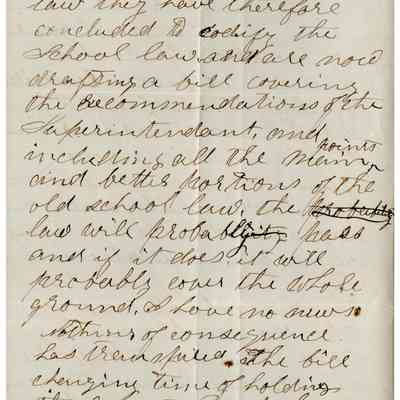 law they have therefore
concluded to codify the
School law and are now
drafting a bill covering
the recommendations of the
Superintendant, and
including all the main points
and better portions of the
old school law, the probability
law will probably pass
and if it does, it will
probably cover the whole
ground, I have no news.
nothing of consequence
has transpired. The bill
changing time of holding